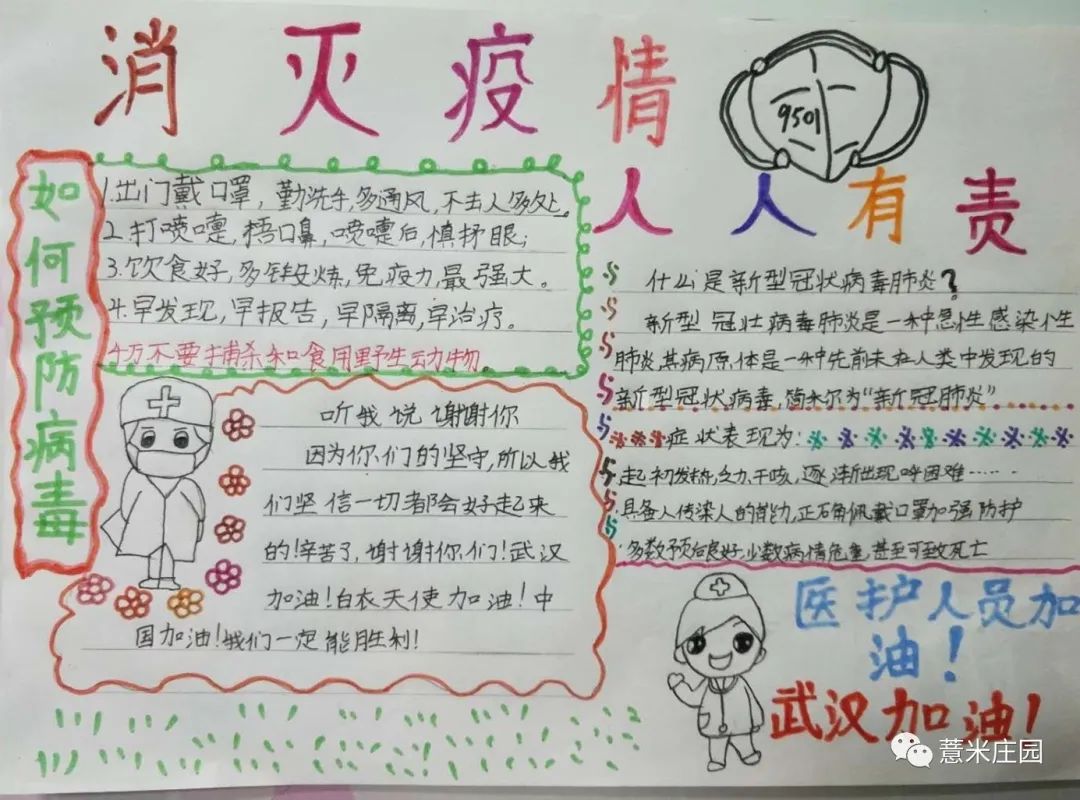 消灭疫情
人人有责
9501
如何预防病毒
1.出门戴口罩，勤洗手，多通风，不去人多处。
2.打喷嚏，捂口鼻，喷嚏后，慎揉眼；
3.饮食好，多锻炼，免疫力，最强大。
4.早发现，早报告，早隔离，早治疗。
千万不要捕杀和食用野生动物。
听我说谢谢你
因为你们的坚守，所以我
们坚信一切都会好起来
的！辛苦了，谢谢你们！武汉
加油！白衣天使加油！中
国加油！我们一定能胜利！
什么是新型冠状病毒肺炎？
新型冠状病毒肺炎是一种急性感染性
肺炎，其病原体是一种先前未在人类中发现的
新型冠状病毒，简称为“新冠肺炎”
症状表现为：
起初发热，乏力，干咳，逐渐出现呼困难……
具备人传染人的能力，正确佩戴口罩加强防护
多数预后良好，少数病情危重，甚至可致死亡
医护人员加
油！
武汉加油！
薏米庄园